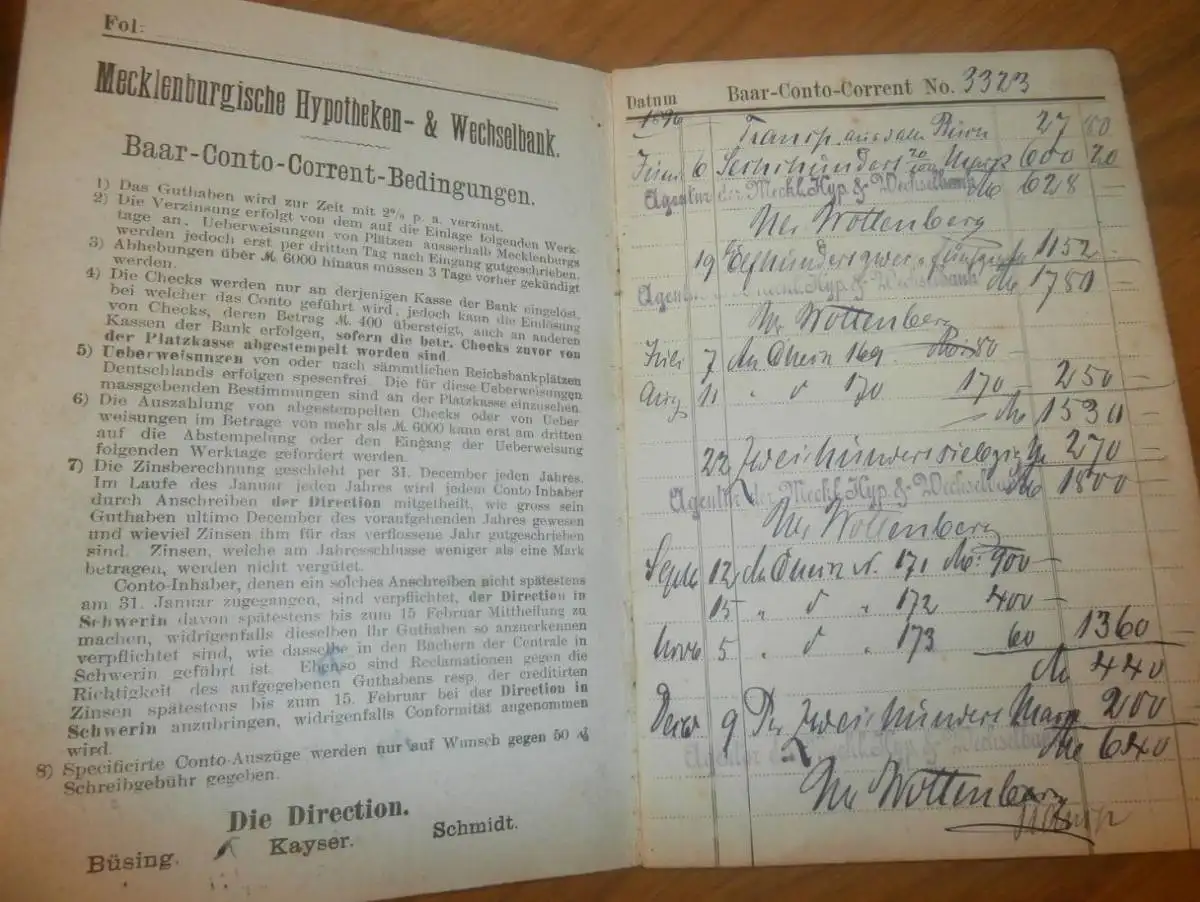 Fol:
Mecklenburgische Hypotheken- & Wechselbank.
Baar-Conto-Corrent-Bedingungen.
1) Das Guthaben wird zur Zeit mit 2% p. a. verzinst.
2) Die Verzinsung erfolgt von dem auf die Einlage folgenden Werk-
tage an. Ueberweisungen von Plätzen ausserhalb Mecklenburgs
werden jedoch erst per dritten Tag nach Eingang gutgeschrieben.
3) Abhebungen über M. 6000 hinaus müssen 3 Tage vorher gekündigt
werden.
4) Die Checks werden nur an derjenigen Kasse der Bank eingelöst,
bei welcher das Conto geführt wird, jedoch kann die Einlösung
von Checks, deren Betrag M. 400 übersteigt, auch an anderen
Kassen der Bank erfolgen, sofern die betr. Checks zuvor von
der Platzkasse abgestempelt worden sind.
5) Ueberweisungen von oder nach sämmtlichen Reichsbankplätzen
Deutschlands erfolgen spesenfrei. Die für diese Ueberweisungen
massgebenden Bestimmungen sind an der Platzkasse einzusehen.
6) Die Auszahlung von abgestempelten Checks oder von Ueber
weisungen im Betrage von mehr als M. 6000 kann erst am dritten
auf die Abstempelung oder den Eingang der Ueberweisung
folgenden Werktage gefordert werden.
7) Die Zinsberechnung geschieht per 31. December jeden Jahres.
Im Laufe des Januar jeden Jahres wird jedem Conto Inhaber
durch Anschreiben der Direction mitgetheilt, wie gross sein
Guthaben ultimo December des voraufgehenden Jahres gewesen
und wieviel Zinsen ihm für das verflossene Jahr gutgeschrieben
sind. Zinsen, welche am Jahresschlusse weniger als eine Mark
betragen, werden nicht vergütet.
Conto-Inhaber, denen ein solches Anschreiben nicht spätestens
am 31. Januar zugegangen, sind verpflichtet, der Direction in
Schwerin davon spätestens bis zum 15 Februar Mittheilung zu
machen, widrigenfalls dieselben Ihr Guthaben so anzuerkennen
verpflichtet sind, wie dasselbe in den Büchern der Centrale in
Schwerin geführt ist. Ebenso sind Reclamationen gegen die
Richtigkeit des aufgegebenen Guthabens resp. der creditirten
Zinsen spätestens bis zum 15. Februar bei der Direction in
Schwerin anzubringen, widrigenfalls Conformität angenommen
wird.
8) Specificirte Conto-Auszüge werden nur auf Wunsch gegen 50 ₰
Schreibgebühr gegeben.
Die Direction.
Büsing. Kayser. Schmidt.
Datum Baar-Conto-Corrent No. 3323
1896 27 80
6 Sechshundert 20/100 Mark 600 20
Agentur der Meckl. Hyp. & Wechselbank M 628 –
Wottenberg
19 1152 –
Agentur der Meckl. Hyp. & Wechselbank M 1780 –
Wottenberg
7 169 80 –
Aug 11 " 170 170 – 250 –
M 1530 –
22 Zweihundertsiebzig M 270 –
Agentur der Meckl. Hyp. & Wechselbank M 1800 –
Wottenberg
Septb 12 171 M. 900 –
15 " " 172 400 –
Novb 5 " 173 60 1360 –
M 440 –
9 Zweihundert Mark 200 –
Agentur der Meckl. Hyp. & Wechselbank M 640 –
Wottenberg